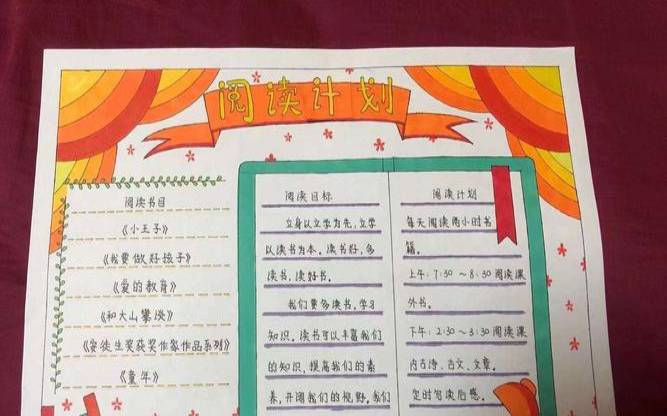 阅读计划
阅读书目
《小王子》
《我要做好孩子》
《爱的教育》
《和大山攀谈》
《安徒生奖获奖作家作品系列》
《童年》
阅读目标
立身以立学为先，立学
以读书为本。读书好，多
读书，读好书。
我们要多读书，学习
知识。读书可以丰富我们
的知识，提高我们的素
养，开阔我们的视野。我们
阅读计划
每天阅读两小时书
籍。
上午：7:30～8:30阅读课
外书。
下午：2:30～3:30阅读课
内古诗、古文、文章。
定时写读后感。